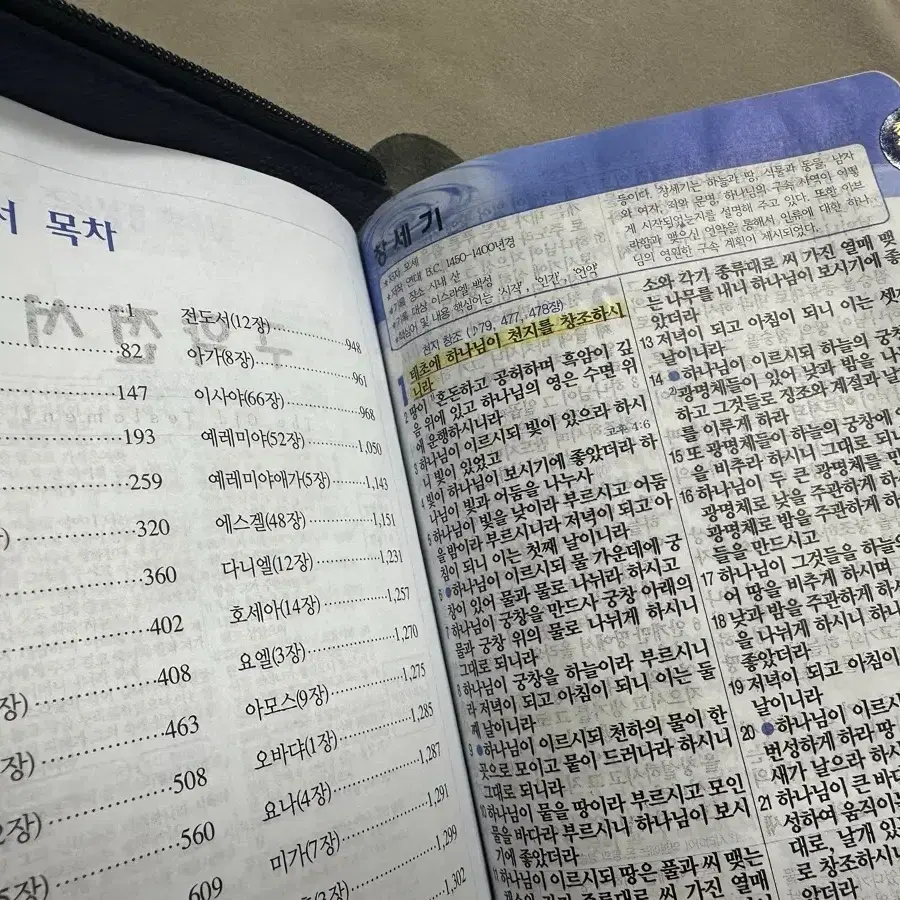 서 목차
1
82
147
193
259
320
360
402
408
장) 463
장) 508
2장) 560
5장) 609
전도서(12장) 948
아가(8장) 961
이사야(66장) 968
예레미야(52장) 1,050
예레미야애가(5장) 1,143
에스겔(48장) 1,151
다니엘(12장) 1,231
호세아(14장) 1,257
요엘(3장) 1,270
아모스(9장) 1,275
오바댜(1장) 1,285
요나(4장) 1,287
미가(7장) 1,291
1,299
1,302
창세기
저자 모세
저작 연대 B.C. 1450-1400년경
기록 장소 시내 산
기록 대상 이스라엘 백성
핵심어 및 내용 핵심어는 '시작', '인간', '언약'
등이다. 창세기는 하늘과 땅, 식물과 동물, 남자
와 여자, 죄와 문명, 하나님의 구속 사역이 어떻
게 시작되었는지를 설명해 주고 있다. 또한 아브
라함과 맺으신 언약을 통해서 인류에 대한 하나
님의 영원한 구속 계획이 제시되었다.
천지 창조 (♪79, 477, 478장)
1 태초에 하나님이 천지를 창조하시
니라
2 땅이 혼돈하고 공허하며 흑암이 깊
음 위에 있고 하나님의 영은 수면 위
에 운행하시니라
고후 4:6
3 하나님이 이르시되 빛이 있으라 하시
니 빛이 있었고
4 빛이 하나님이 보시기에 좋았더라 하
나님이 빛과 어둠을 나누사
5 하나님이 빛을 낮이라 부르시고 어둠
을 밤이라 부르시니라 저녁이 되고 아
침이 되니 이는 첫째 날이니라
6 하나님이 이르시되 물 가운데에 궁
창이 있어 물과 물로 나뉘라 하시고
7 하나님이 궁창을 만드사 궁창 아래의
물과 궁창 위의 물로 나뉘게 하시니
그대로 되니라
8 하나님이 궁창을 하늘이라 부르시니
라 저녁이 되고 아침이 되니 이는 둘
째 날이니라
9 하나님이 이르시되 천하의 물이 한
곳으로 모이고 뭍이 드러나라 하시니
그대로 되니라
10 하나님이 뭍을 땅이라 부르시고 모인
물을 바다라 부르시니 하나님이 보시
기에 좋았더라
11 하나님이 이르시되 땅은 풀과 씨 맺는
채소와 각기 종류대로 씨 가진 열매
소와 각기 종류대로 씨 가진 열매 맺
는 나무를 내니 하나님이 보시기에 좋
았더라
13 저녁이 되고 아침이 되니 이는 셋째
날이니라
14 하나님이 이르시되 하늘의 궁창
광명체들이 있어 낮과 밤을 나
하고 그것들로 징조와 계절과 날
를 이루게 하라
15 또 광명체들이 하늘의 궁창에
을 비추라 하시니 그대로 되니
16 하나님이 두 큰 광명체를 만
광명체로 낮을 주관하게 하시
광명체로 밤을 주관하게 하시
들을 만드시고
17 하나님이 그것들을 하늘의
어 땅을 비추게 하시며
18 낮과 밤을 주관하게 하시
을 나뉘게 하시니 하나
좋았더라
19 저녁이 되고 아침이
날이니라
20 하나님이 이르시
번성하게 하라 땅
새가 날으라 하시
21 하나님이 큰 바다
성하여 움직이는
대로, 날개 있
로 창조하시니
았더라